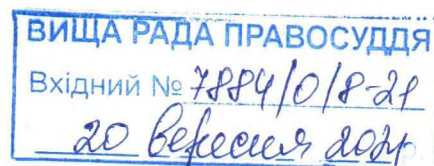 ВИЩА РАДА ПРАВОСУДДЯ
Вхідний № 7884/0/8-21
20 вересня 2021